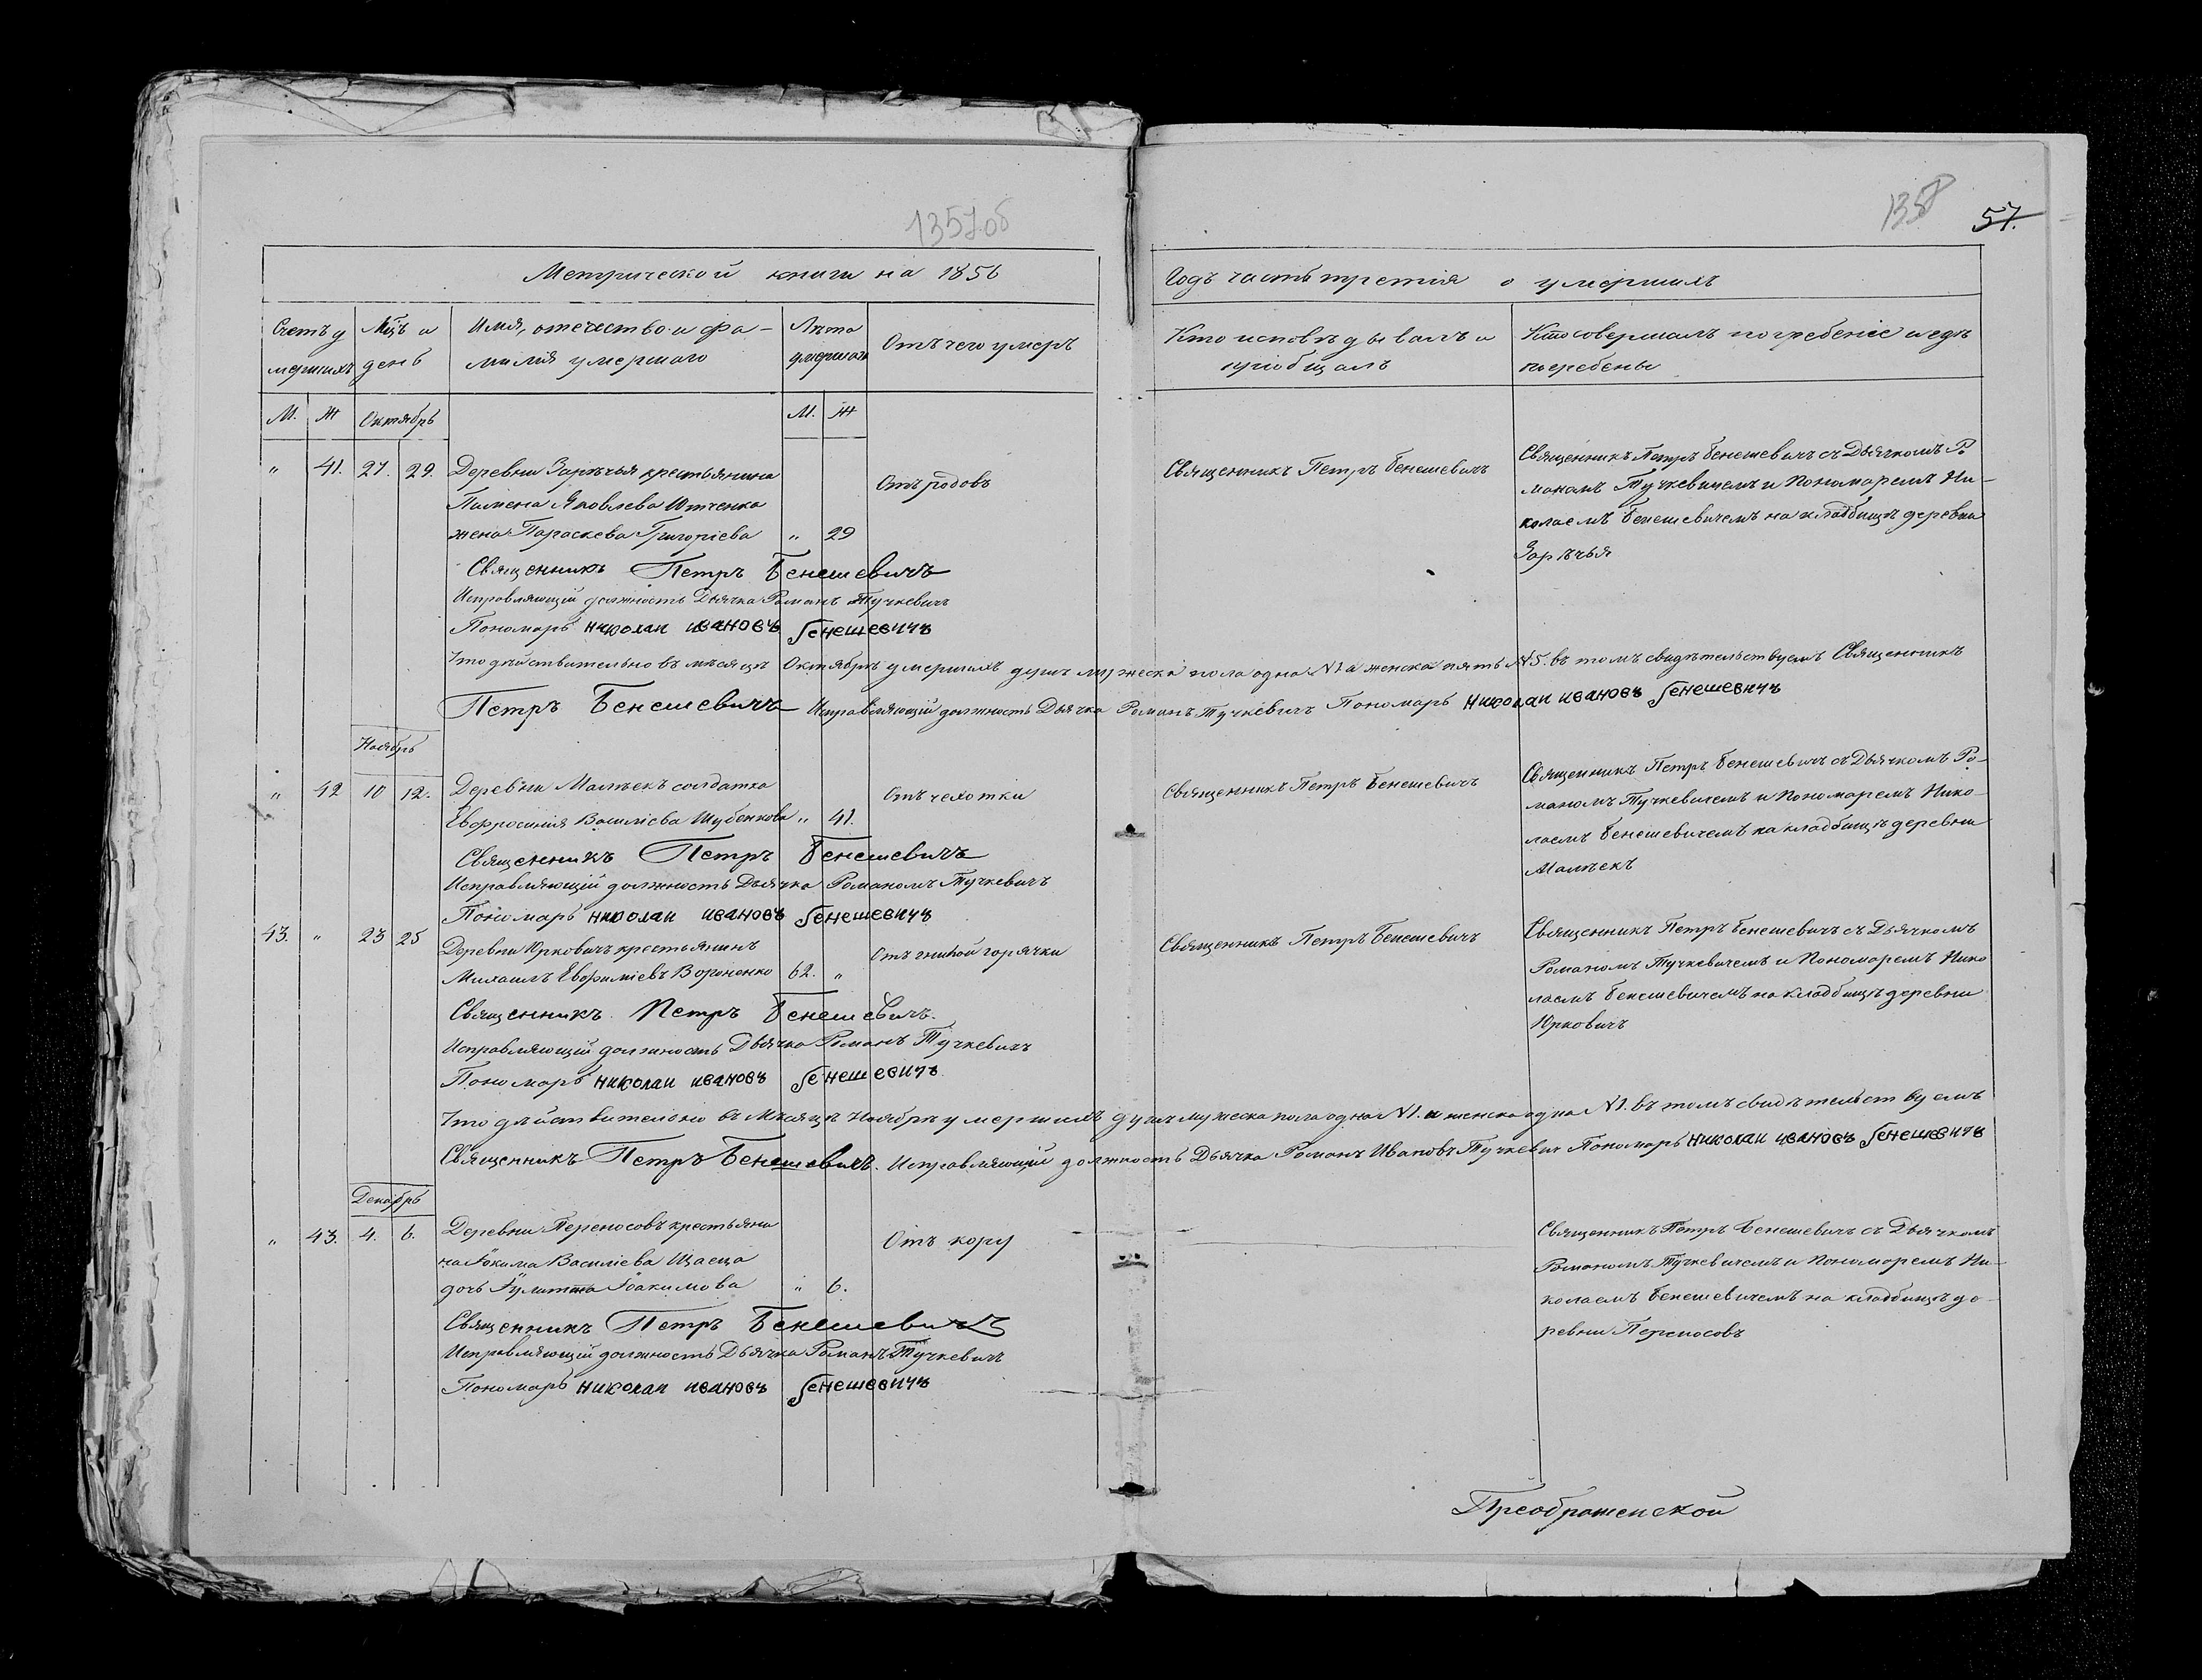 1357об
1358
57.
Метрической книги на 1856
Годъ часть третія о умершихъ
Счетъ у
мершихъ
Мцъ и
день
Имя, отечество и фа-
милія умершаго
Лѣта
умершаго
Отъ чего умеръ
Кто исповѣдывалъ и
пріобщалъ
Кто совершалъ погребеніе и гдѣ
погребены
М. Ж Октябрь М. Ж
" 41. 27. 29. Деревни Зарѣчья крестьянина
Памена Яковлева
жена Параскева Григоріева " 29
Отъ родовъ
Священникъ Петръ Бенешевичъ
Священникъ Петръ Бенешевичъ съ Дьячкомъ Ро
маномъ Тучкевичемъ и Пономаремъ Ни-
колаемъ Бенешевичемъ на кладбищѣ деревни
Зарѣчья
Священникъ Петръ Бенешевичъ
Исправляющій должность Дьячка Романъ Тучкевичъ
Пономарь николаи ивановъ бенешевичъ
Что дѣйствительно въ мѣсяцѣ Октябрѣ умершихъ душъ мужеска пола одна №1 а женска пять №5. въ томъ свидѣтельствуемъ Священникъ
Петръ Бенешевичъ Исправляющій должность Дьячка Романъ Тучкевичъ Пономарь николаи ивановъ бенешевичъ
Ноябрь
" 42 10 12. Деревни Малѣекъ солдатка
Евфросинія Василіева Шубенкова " 41.
Отъ чехотки
Священникъ Петръ Бенешевичъ
Священникъ Петръ Бенешевичъ съ Дьячкомъ Ро-
маномъ Тучкевичемъ и Пономаремъ Нико-
лаемъ Бенешевичемъ на кладбищѣ деревни
Малѣекъ
Священникъ Петръ Бенешевичъ
Исправляющій должность Дьячка Романомъ Тучкевичъ
Пономарь николаи ивановъ бенешевичъ
43. " 23 25 Деревни Юрковичъ крестьянинъ
Михаилъ Евфиміевъ Вороненко 62. "
Отъ гнилой горячки
Священникъ Петръ Бенешевичъ
Священникъ Петръ Бенешевичъ съ Дьячкомъ
Романомъ Тучкевичемъ и Пономаремъ Нико
лаемъ Бенешевичемъ на кладбищѣ деревни
Юрковичъ
Священникъ Петръ Бенешевичъ.
Исправляющій должность Дьячка Романъ Тучкевичъ
Пономарь николаи ивановъ бенешевичъ
Что дѣйствительно въ Мѣсяцѣ Ноябрѣ умершихъ душъ мужеска пола одна №1. и женска одна №1. въ томъ свидѣтельствуемъ
Священникъ Петръ Бенешевичъ. Исправляющій должность Дьячка Романъ Ивановъ Тучкевич Пономарь николаи ивановъ бенешевичъ
Декабрь
" 43. 4. 6. Деревни Переносовъ крестьяни
на Іокима Василіева
дочь Іулитта Іоакимова " 6.
Отъ кору
Священникъ Петръ Бенешевичъ съ Дьячкомъ
Романомъ Тучкевичемъ и Пономаремъ Ни-
колаемъ Бенешевичемъ на кладбищѣ де-
ревни Переносовъ
Священникъ Петръ Бенешевичъ
Исправляющій должность Дьячка Романъ Тучкевичъ
Пономарь николаи ивановъ бенешевичъ
Преображенской